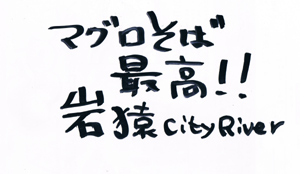 マグロそば
最高!!
岩猿 City River